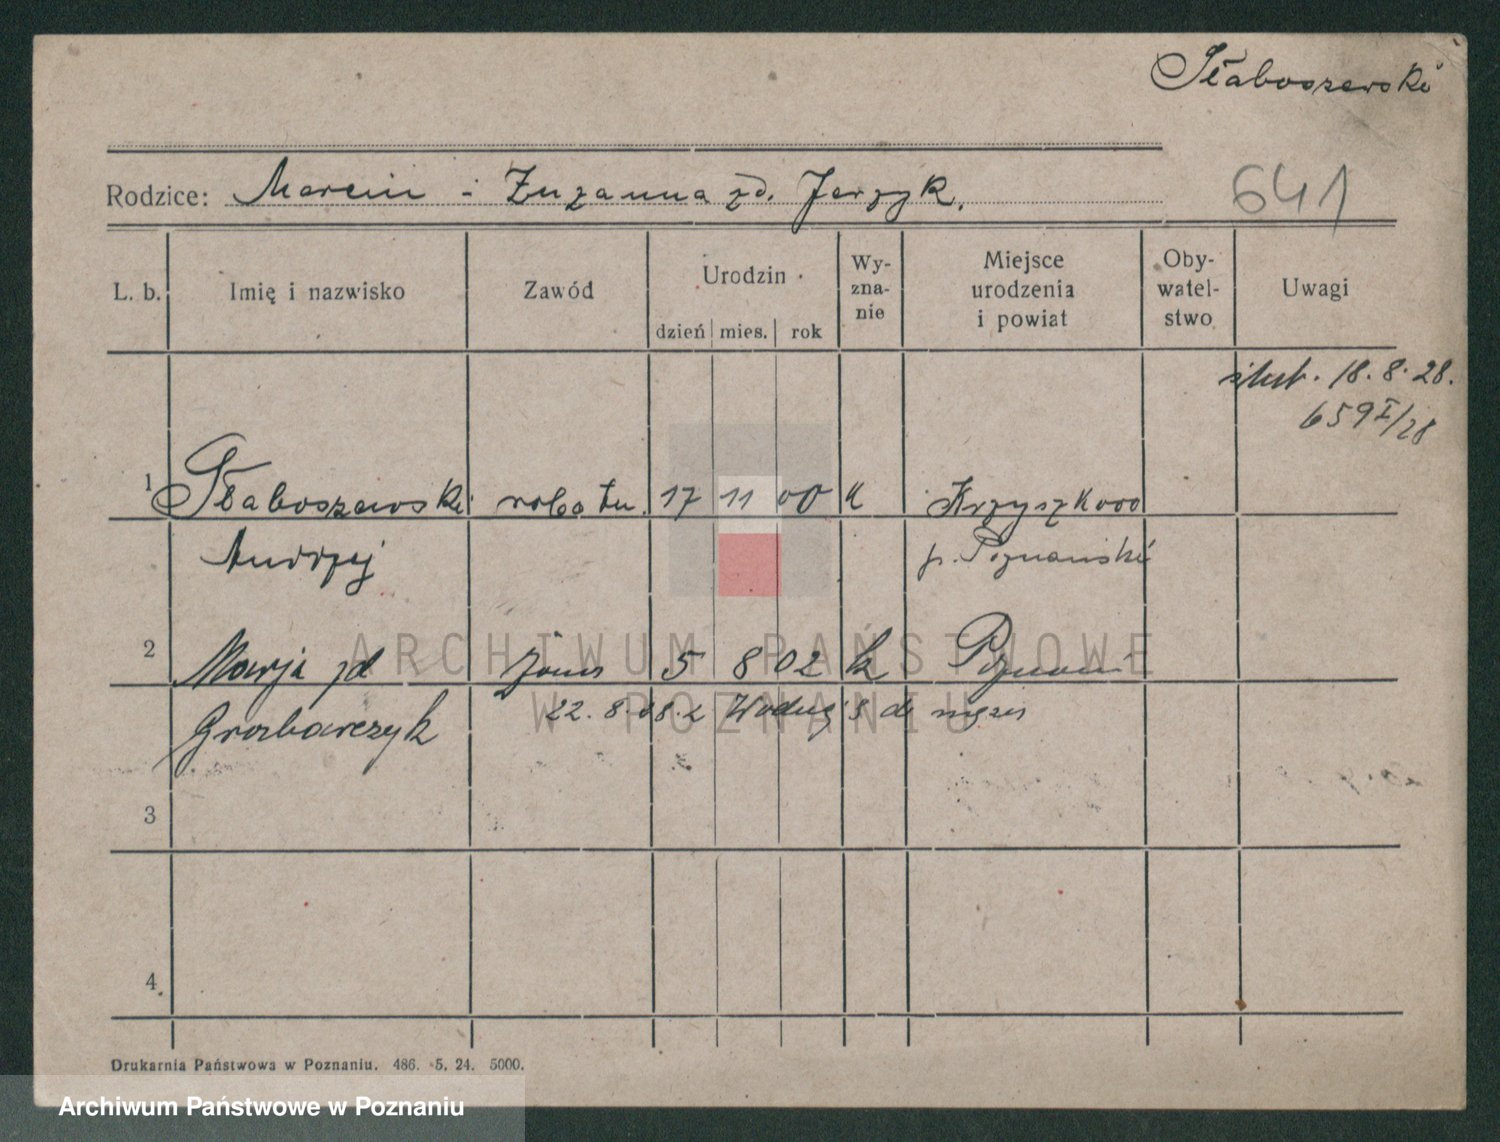 Słaboszewski
Rodzice: Marcin - Zuzanna zd. Jerzyk.
641
L. b. Imię i nazwisko Zawód Urodzin Wy-zna-nie Miejsce urodzenia i powiat Oby-watel-stwo Uwagi
dzień mies. rok
18. 8. 28.
659 I/28
1 Słaboszewski robotn. 17 11 00 k Krzyszkowo
Andrzej p. Poznański
2 Marja zd żona 5 8 02 k Poznań
Grobarczyk 22. 8.
3
4
Drukarnia Państwowa w Poznaniu. 486. 5. 24. 5000.
ARCHIWUM PAŃSTWOWE
W POZNANIU
Archiwum Państwowe w Poznaniu